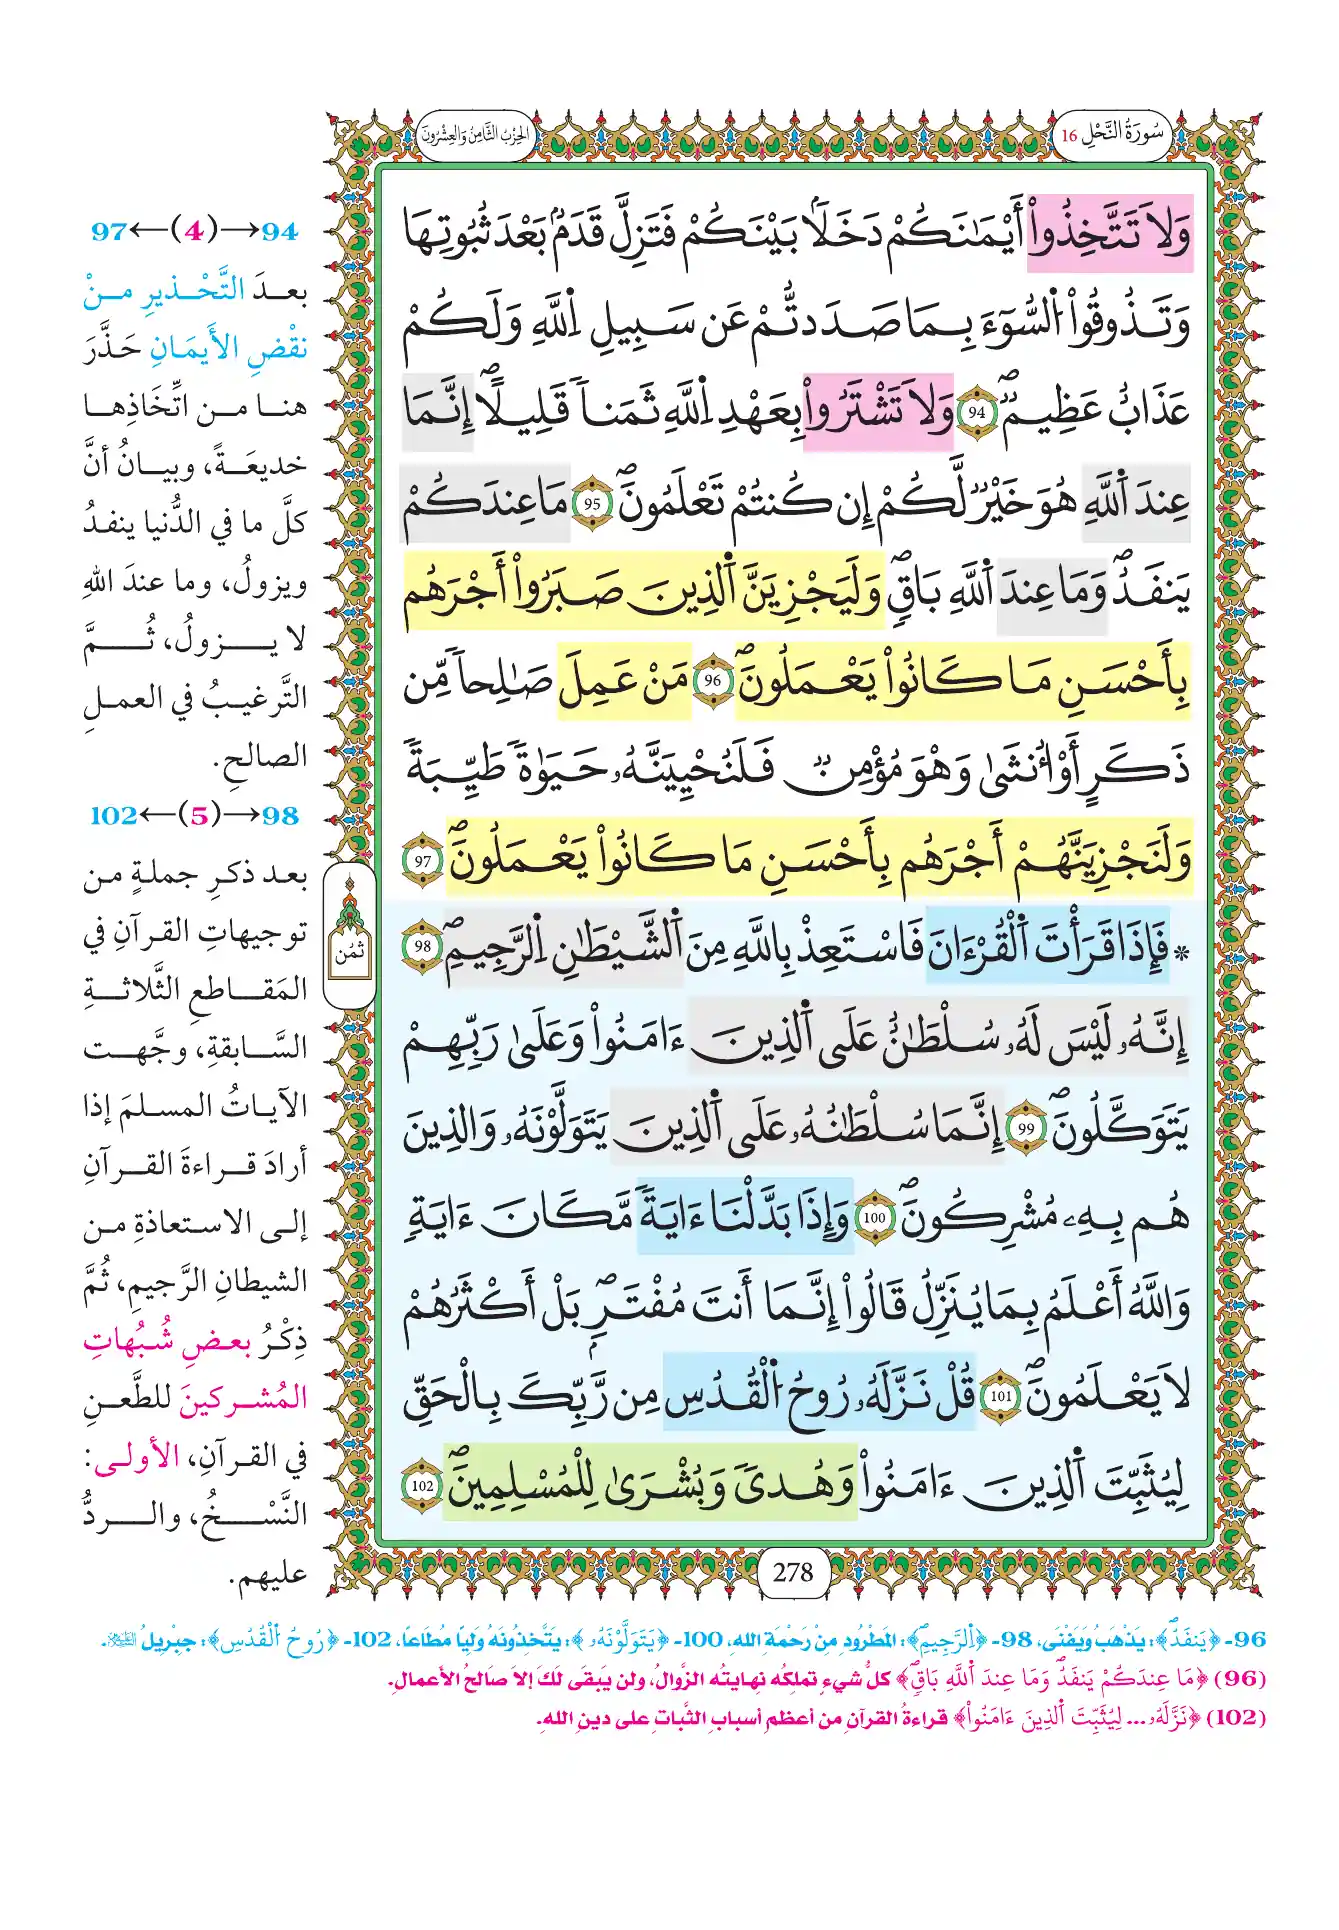 سُورَةُ النَّحْلِ 16
الحِزْبُ الثَّامِنُ وَالعِشْرُونَ
وَلَا تَتَّخِذُوٓاْ أَيْمَٰنَكُمْ دَخَلَۢا بَيْنَكُمْ فَتَزِلَّ قَدَمُۢ بَعْدَ ثُبُوتِهَا
وَتَذُوقُواْ اُ۬لسُّوٓءَ بِمَا صَدَدتُّمْ عَن سَبِيلِ اِ۬للَّهِ وَلَكُمْ
عَذَابٌ عَظِيمٞۖ 94 وَلَا تَشْتَرُواْ بِعَهْدِ اِ۬للَّهِ ثَمَناٗ قَلِيلًاۖ اِنَّمَا
عِندَ اَ۬للَّهِ هُوَ خَيْرٞ لَّكُمْ إِن كُنتُمْ تَعْلَمُونَۖ 95 مَا عِندَكُمْ
يَنفَدُۖ وَمَا عِندَ اَ۬للَّهِ بَاقٖۖ وَلَيَجْزِيَنَّ اَ۬لذِينَ صَبَرُوٓاْ أَجْرَهُم
بِأَحْسَنِ مَا كَانُواْ يَعْمَلُونَۖ 96 مَنْ عَمِلَ صَٰلِحاٗ مِّن
ذَكَرٍ أَوُ ا۟نث۪يٰ وَهُوَ مُؤْمِنٞ فَلَنُحْيِيَنَّهُۥ حَيَوٰةٗ طَيِّبَةٗ
وَلَنَجْزِيَنَّهُمْ أَجْرَهُم بِأَحْسَنِ مَا كَانُواْ يَعْمَلُونَۖ 97
* فَإِذَا قَرَأْتَ اَ۬لْقُرْءَانَ فَاسْتَعِذْ بِاللَّهِ مِنَ اَ۬لشَّيْطَٰنِ اِ۬لرَّجِيمِۖ 98
إِنَّهُۥ لَيْسَ لَهُۥ سُلْطَٰنٌ عَلَي اَ۬لذِينَ ءَامَنُواْ وَعَلَىٰ رَبِّهِمْ
يَتَوَكَّلُونَۖ 99 إِنَّمَا سُلْطَٰنُهُۥ عَلَي اَ۬لذِينَ يَتَوَلَّوْنَهُۥ وَالذِينَ
هُم بِهِۦ مُشْرِكُونَۖ 100 وَإِذَا بَدَّلْنَآ ءَايَةٗ مَّكَانَ ءَايَةٖ
وَاللَّهُ أَعْلَمُ بِمَا يُنَزِّلُ قَالُوٓاْ إِنَّمَآ أَنتَ مُفْتَرِۢۖ بَلْ أَكْثَرُهُمْ
لَا يَعْلَمُونَۖ 101 قُلْ نَزَّلَهُۥ رُوحُ اُ۬لْقُدُسِ مِن رَّبِّكَ بِالْحَقِّ
لِيُثَبِّتَ اَ۬لذِينَ ءَامَنُواْ وَهُدىٗ وَبُشْر۪يٰ لِلْمُسْلِمِينَۖ 102
ثُمُن
278
94→(4)←97
بعدَ التَّحْذيرِ منْ
نقْضِ الأَيمَانِ حَذَّرَ
هنا من اتِّخَاذِها
خديعَةً، وبيانُ أنَّ
كلَّ ما في الدُّنيا ينفدُ
ويزولُ، وما عندَ اللهِ
لا يزولُ، ثُمَّ
التَّرغيبُ في العملِ
الصالحِ.
98→(5)←102
بعد ذكرِ جملةٍ من
توجيهاتِ القرآنِ في
المَقاطعِ الثَّلاثةِ
السَّابقةِ، وجَّهت
الآياتُ المسلمَ إذا
أرادَ قراءةَ القرآنِ
إلى الاستعاذةِ من
الشيطانِ الرَّجيمِ، ثُمَّ
ذِكْرُ بعضِ شُبُهاتِ
المُشركينَ للطَّعنِ
في القرآنِ، الأولى:
النَّسْخُ، والردُّ
عليهم.
96- ﴿يَنفَدُۖ﴾: يَذْهَبُ وَيَفْنَى، 98- ﴿اِ۬لرَّجِيمِۖ﴾: المَطْرُودِ مِنْ رَحْمَةِ اللهِ، 100- ﴿يَتَوَلَّوْنَهُۥ﴾: يَتَّخِذُونَهُ وَلِيًّا مُطَاعًا، 102- ﴿رُوحُ اُ۬لْقُدُسِ﴾: جِبْرِيلُ عليه السلام.
(96) ﴿مَا عِندَكُمْ يَنفَدُۖ وَمَا عِندَ اَ۬للَّهِ بَاقٖۖ﴾ كلُّ شيءٍ تملكُه نهايتُه الزَّوالُ، ولن يبقى لكَ إلا صالحُ الأعمالِ.
(102) ﴿نَزَّلَهُۥ ... لِيُثَبِّتَ اَ۬لذِينَ ءَامَنُواْ﴾ قراءةُ القرآنِ من أعظمِ أسبابِ الثَّباتِ على دينِ اللهِ.